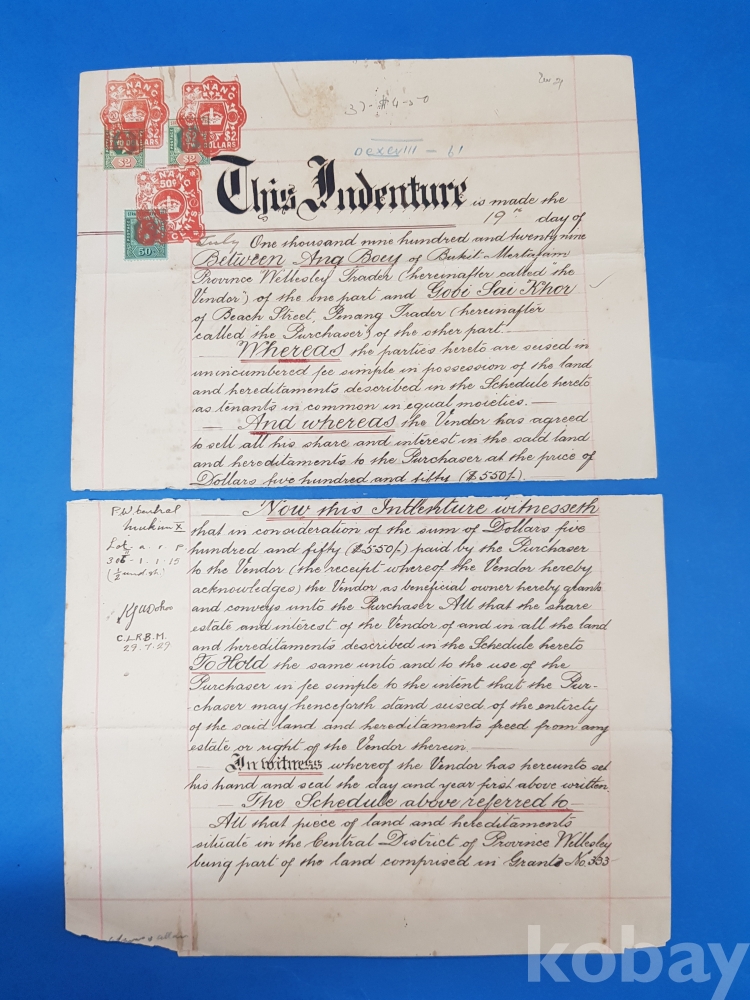 PENANG
$2
DOLLARS
$2
PENANG
$2
DOLLARS
$2
PENANG
50c
CENTS
50
3)-$4-50
Dcxcviii - 61
This Indenture is made the
19th day of
July One thousand nine hundred and twenty nine
Between Ang Boey of Bukit Mertajam
Province Wellesley Trader (hereinafter called "the
Vendor") of the one part and Gobi Sai Khor
of Beach Street, Penang Trader (hereinafter
called the Purchaser) of the other part
Whereas the parties hereto are seised in
unincumbered fee simple in possession of the land
and hereditaments described in the Schedule hereto
as tenants in common in equal moieties.
And whereas the Vendor has agreed
to sell all his share and interest in the said land
and hereditaments to the Purchaser at the price of
Dollars five hundred and fifty ($550/-).
P.W. Central
Mukim X
Lot a. r. p.
305 - 1. 1. 15
(½ und sh.)
C.L.R.B.M.
29.7.29
Now this Indenture witnesseth
that in consideration of the sum of Dollars five
hundred and fifty ($550/-) paid by the Purchaser
to the Vendor (the receipt whereof the Vendor hereby
acknowledges) the Vendor as beneficial owner hereby grants
and conveys unto the Purchaser All that the share
estate and interest of the Vendor of and in all the land
and hereditaments described in the Schedule hereto
To Hold the same unto and to the use of the
Purchaser in fee simple to the intent that the Pur-
chaser may henceforth stand seised of the entirety
of the said land and hereditaments freed from any
estate or right of the Vendor therein.
In witness whereof the Vendor has hereunto set
his hand and seal the day and year first above written.
The Schedule above referred to
All that piece of land and hereditaments
situate in the Central District of Province Wellesley
being part of the land comprised in Grants No. 333
kobay